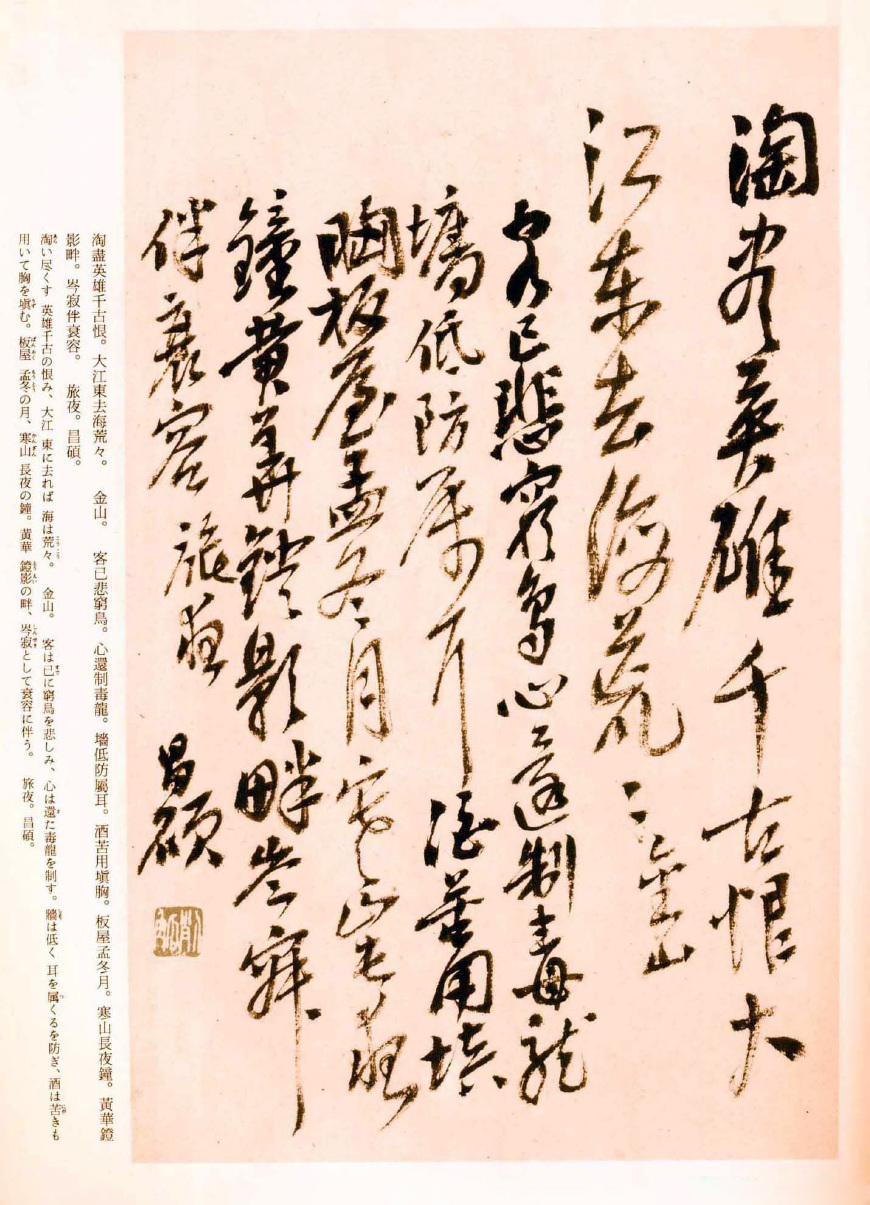 淘盡英雄千古恨大
江東去海荒〻金山
客已悲窮鳥心還制毒龍
墻低防屬耳酒苦用填
胸板屋孟冬月寒山長夜
鐘黄華鐙影畔岑寂
伴衰容旅夜
昌碩
淘盡英雄千古恨。大江東去海荒々。　金山。　客已悲窮鳥。心還制毒龍。墻低防屬耳。酒苦用塡胸。板屋孟冬月。寒山長夜鐘。黃華鐙
影畔。岑寂伴衰容。　旅夜。昌碩。
淘い尽くす 英雄千古の恨み、大江 東に去れば 海は荒々。　金山。　客は已に窮鳥を悲しみ、心は還た毒龍を制す。牆は低く 耳を属くるを防ぎ、酒は苦きも
用いて胸を塡む。板屋 孟冬の月、寒山 長夜の鐘。黃華 鐙影の畔、岑寂として衰容に伴う。　旅夜。昌碩。